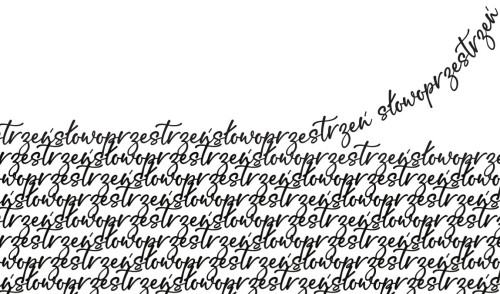 trzeńsłowoprzestrzeńsłowoprzestrzeń słowoprzestrzeń
przestrzeńsłowoprzestrzeńsłowoprzestrzeńsłowop
owoprzestrzeńsłowoprzestrzeńsłowoprzestrzeń
estrzeńsłowoprzestrzeńsłowoprzestrzeńsłowo
trzeńsłowoprzestrzeńsłowoprzestrzeńsłowoprz
przestrzeńsłowoprzestrzeńsłowoprzestrzeńsłowop
owoprzestrzeńsłowoprzestrzeńsłowoprzestrzeń
estrzeńsłowoprzestrzeńsłowoprzestrzeńsłowo